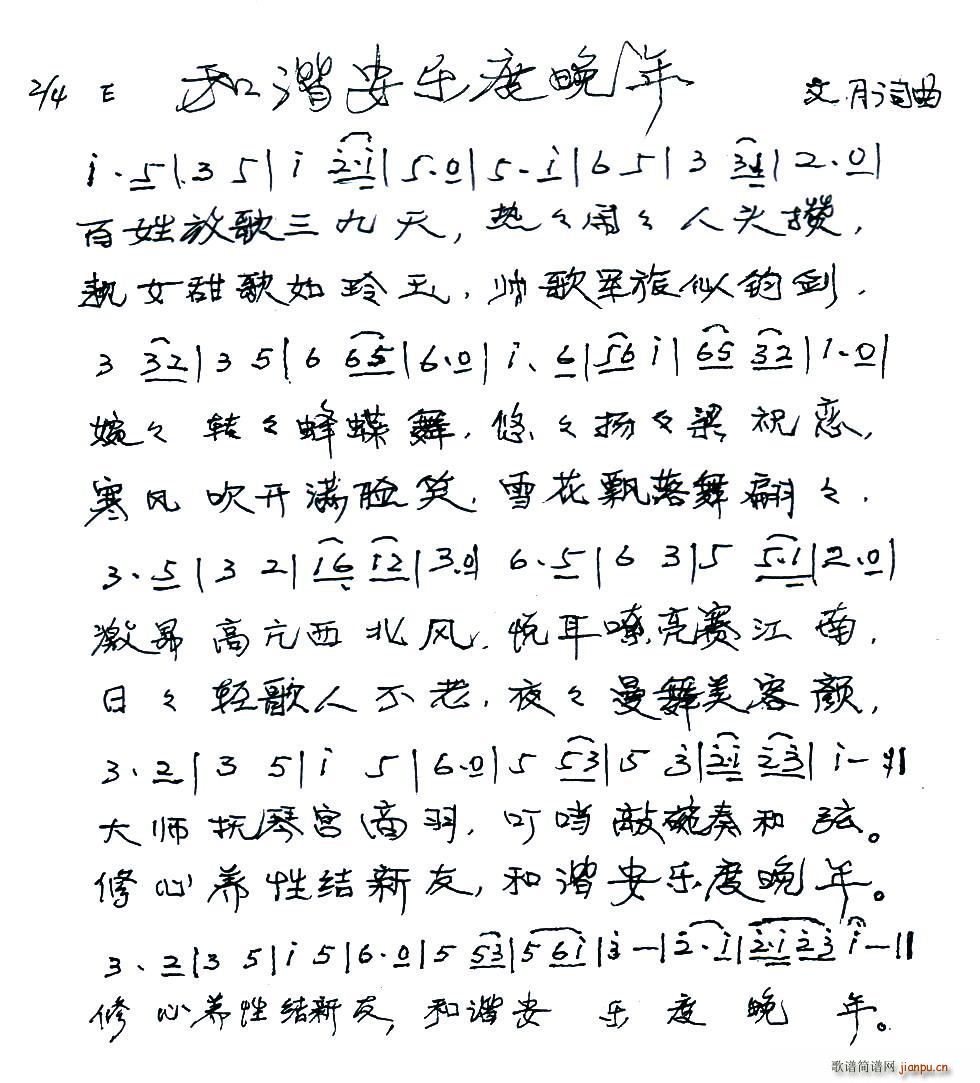 2/4 E 和谐安乐度晚年 文月词曲
i·5|35|i 2·i|5·0|5·i|65|3 31|2·0|
百姓放歌三九天，热々闹々人头攒，
女甜歌如玲玉，帅歌军旅似钧剑，
3 32|35|6 65|6·0|i·6|56i|65 32|1·0|
婉々转々蜂蝶舞，悠々扬々梁祝恋，
寒风吹开满脸笑，雪花飘落舞翩々，
3·5|32|16 12|3·0|6·5|63|5 5·1|2·0|
激昂高亢西北风，悦耳嘹亮赛江南，
日々轻歌人不老，夜々曼舞美容颜，
3·2|35|i5|6·0|5 53|53|2·i 23|i-||
大师抚琴宫商羽，叮当敲碗奏和弦。
修心养性结新友，和谐安乐度晚年。
3·2|35|i5|6·0|5 53|5 6i|3-|2·i|2·i 23|i-||
修心养性结新友，和谐安乐度晚年。
歌谱简谱网 jianpu.cn